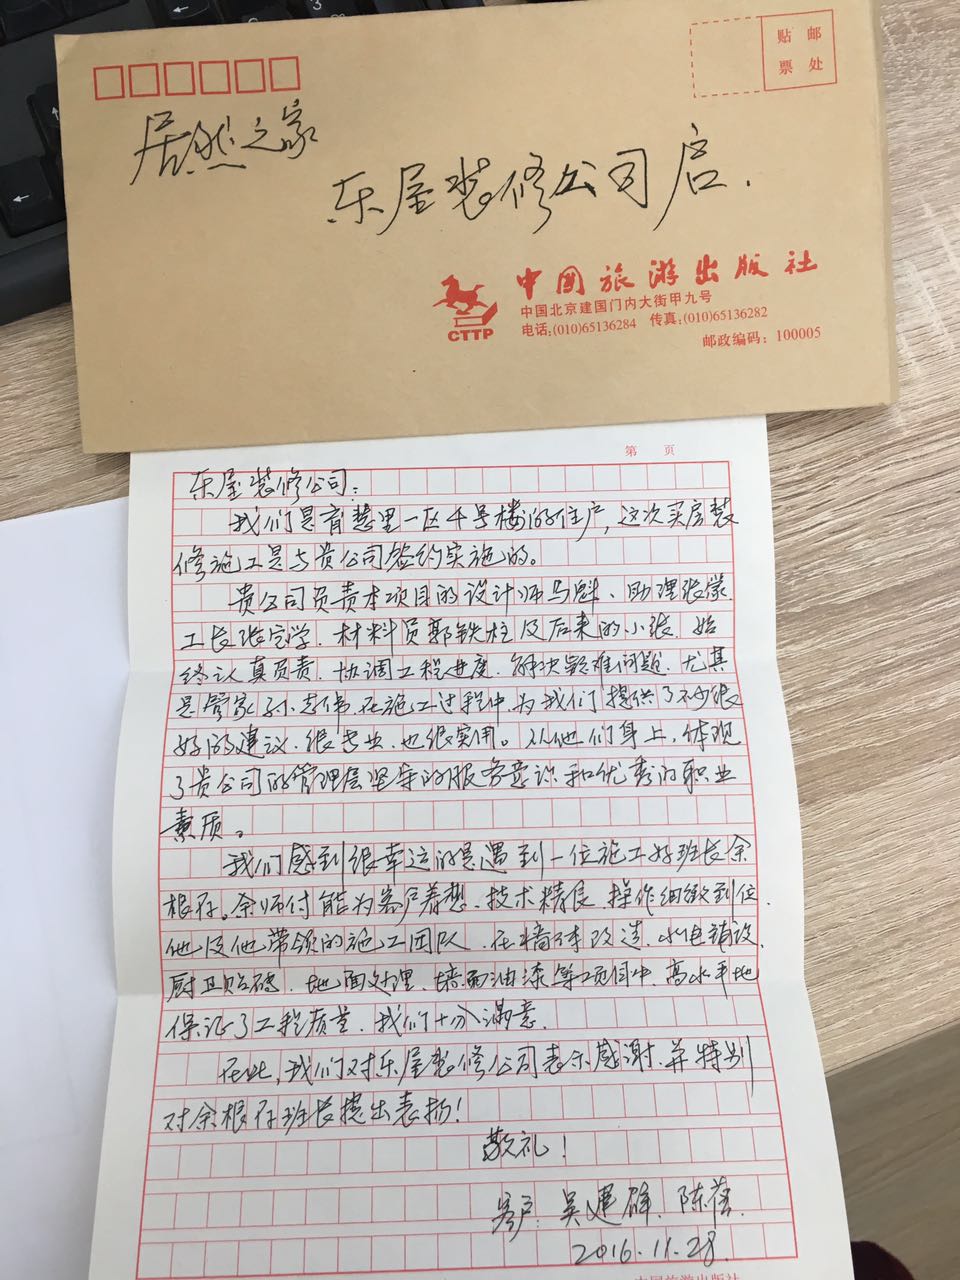 贴 邮
票 处
居然之家
东屋装修公司启.
中国旅游出版社
中国北京建国门内大街甲九号
电话:(010)65136284 传真:(010)65136282
邮政编码：100005
CTTP
第 页
东屋装修公司:
我们是育慧里一区4号楼的住户,这次买房装
修施工是与贵公司签约实施的。
贵公司负责本项目的设计师马魁、助理张
工长张宝学、材料员郭铁柱及后来的小张,始
终认真负责、协调工程进度、解决疑难问题,尤其
是管家孙志伟,在施工过程中,为我们提供了不少很
好的建议、很专业、也很实用。从他们身上,体现
了贵公司的管理层坚守的服务意识和优秀的职业
素质。
我们感到很幸运的是遇到一位施工好班长余
根存。余师付能为客户着想、技术精良、操作细致到位,
他及他带领的施工团队,在墙体改造、水电铺设、
厨卫贴砖、地面处理、墙面油漆等项目中,高水平地
保证了工程质量,我们十分满意.
在此,我们对东屋装修公司表示感谢,并特别
对余根存班长提出表扬!
敬礼!
客户: 吴建雄、陈蓓.
2016.11.28
中国旅游出版社